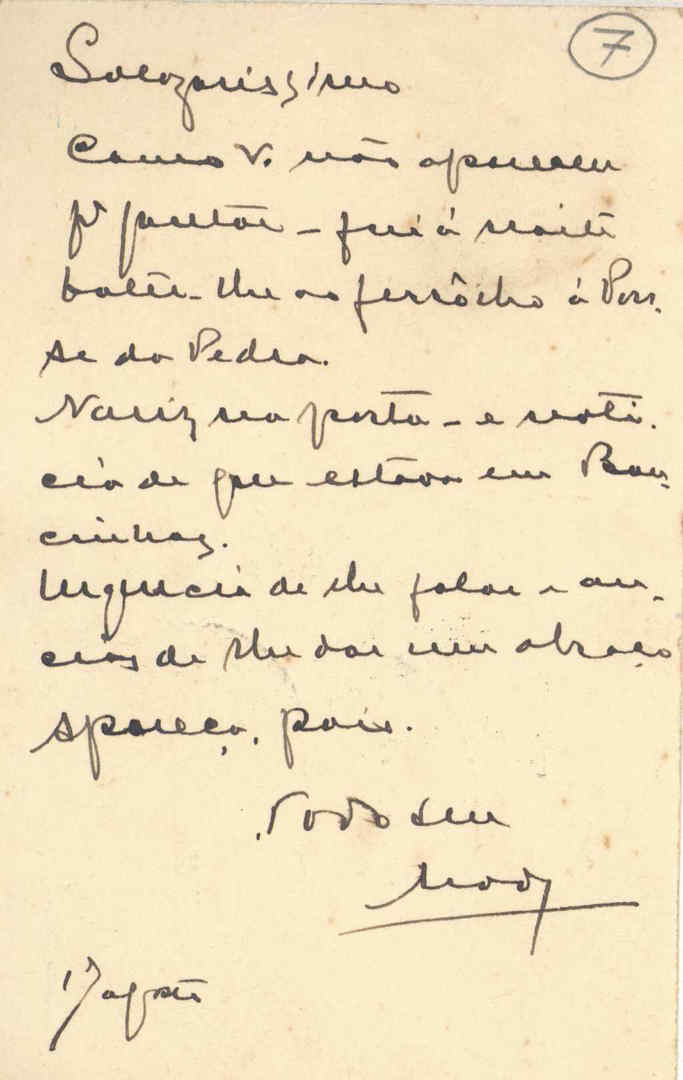 7
Salazaríssimo
Como V. não apareceu
pª jantar - fui á noite
bater-lhe ao ferrôlho á Pos-
se da Pedra.
Nariz na porta - e noti-
cia de que estava em Bar-
cinhas.
Urgencia de lhe falar e an-
cias de lhe dar um abraço
Apareça, pois.
Todo seu
17 agosto